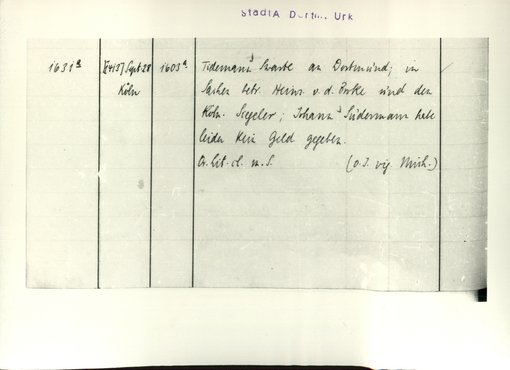 StadtA Dortm. Urk
1631a [1413] Sept 28 1603a Tidemann Swarte an Dortmund; in
Köln Sachen betr. Heinr. v. d. und den
Köln. Siegeler; Johann Südermann habe
leider kein Geld gegeben.
Or. lit. cl. m. S. (o. J. vig. Mich.)